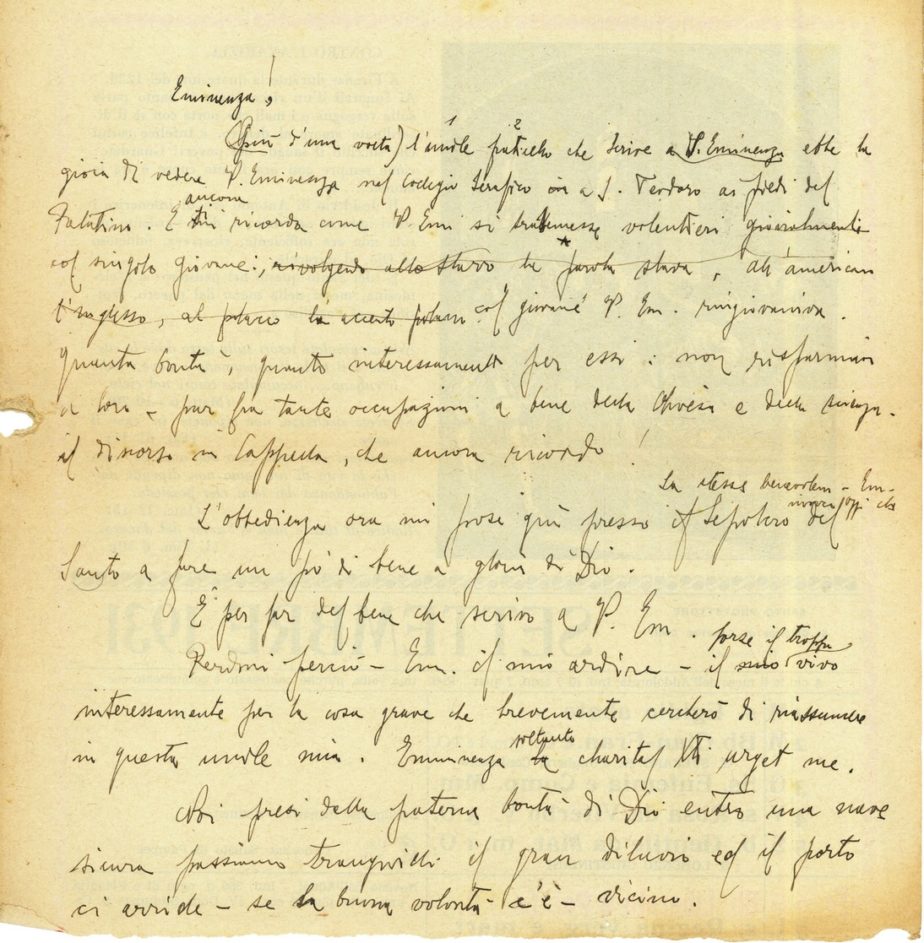 Eminenza!
(Più d'una volta) l'umile fraticello che scrive a S. Eminenza ebbe la
gioia di vedere V. Eminenza nel Collegio Serafico ora a S. Teodoro ai piedi del
Palatino. E ancora mi ricordo come V. Em si trattenesse volentieri giovialmente
col singolo giovane: rivolgendo allo slavo la parola slava, all'american
l'inglese, al polacco la accento polacco col giovane V. Em. ringiovaniva.
Quanta bontà, quanto interessamento per essi: non risparmiava
a loro – pur fra tante occupazioni a bene della Chiesa e della scienza
il discorso in Cappella, che ancora ricordo!
La stessa – Em –
oggi che
L'obbedienza ora mi pose qui presso il Sepolcro del
Santo a fare un pò di bene a gloria di Dio.
È per far del bene che scrivo a V. Em.
forse il troppo
Perdoni perciò – Em. il mio ardire – il mio vivo
interessamento per la cosa grave che brevemente cercherò di riassumere
in questa umile mia. Eminenza soltanto la charitas Xti urget me.
Noi presi dalla paterna bontà di Dio entro una nave
sicura passiamo tranquilli il gran diluvio ed il porto
ci arride – se la buona volontà c'è – vicino.